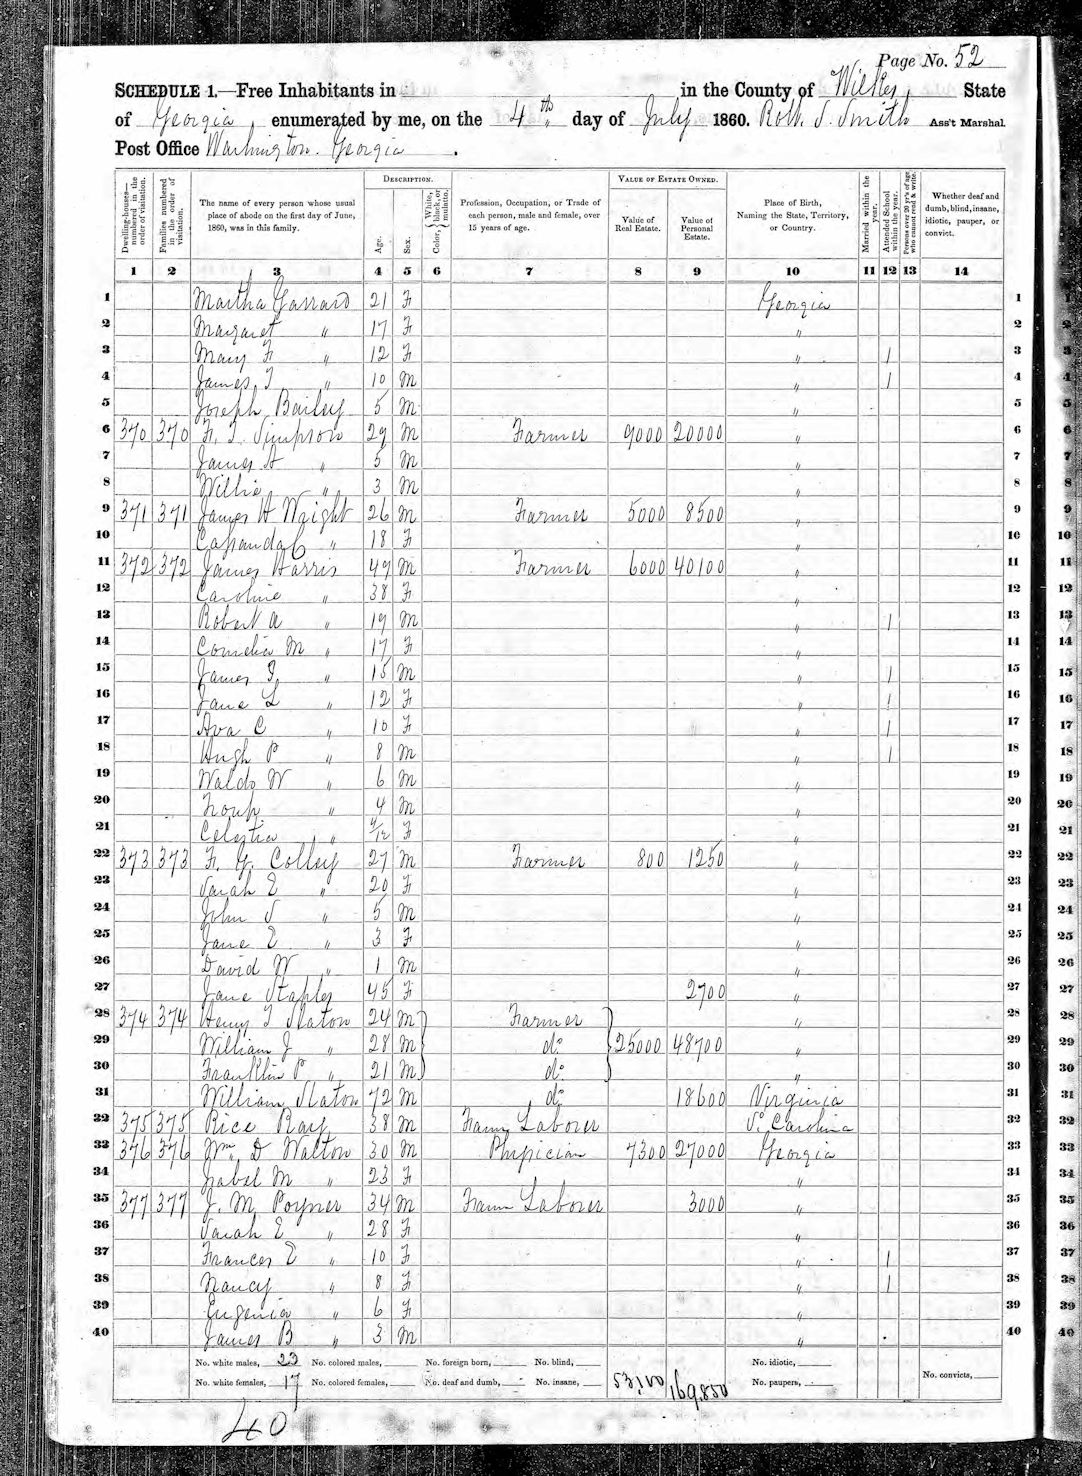 Page No. 52
SCHEDULE 1.—Free Inhabitants in in the County of Wilkes State
of Georgia, enumerated by me, on the 4th day of July 1860. Robt. S. Smith Ass't Marshal.
Post Office Washington Georgia.
Dwelling-houses—numbered in the order of visitation.
Families numbered in the order of visitation.
The name of every person whose usual place of abode on the first day of June, 1860, was in this family.
DESCRIPTION.
Age.
Sex.
Color, { White, black, or mulatto.
Profession, Occupation, or Trade of each person, male and female, over 15 years of age.
VALUE OF ESTATE OWNED.
Value of Real Estate.
Value of Personal Estate.
Place of Birth, Naming the State, Territory, or Country.
Married within the year.
Attended School within the year.
Persons over 20 y'rs of age who cannot read & write.
Whether deaf and dumb, blind, insane, idiotic, pauper, or convict.
1 2 3 4 5 6 7 8 9 10 11 12 13 14
1 Martha Garrard 21 F Georgia 1
2 Margaret " 17 F " 2
3 Mary F " 12 F " / 3
4 James T " 10 M " / 4
5 Joseph Bailey 5 M " 5
6 370 370 F. T. Simpson 29 M Farmer 9000 20000 " 6
7 James A " 5 M " 7
8 Willie " 3 M " 8
9 371 371 James H Wright 26 M Farmer 5000 8500 " 9
10 " 18 F " 10
11 372 372 James Harris 49 M Farmer 6000 40100 " 11
12 Caroline " 38 F " 12
13 Robert A " 19 M " / 13
14 Cornelia M " 17 F " 14
15 James " 15 M " / 15
16 Jane L " 12 F " / 16
17 Ava C " 10 F " / 17
18 Hugh P " 8 M " / 18
19 Waldo W " 6 M " 19
20 Troup " 4 M " 20
21 Celestia " /12 F " 21
22 373 373 F. G. Colley 27 M Farmer 800 1250 " 22
23 Sarah E " 20 F " 23
24 John S " 5 M " 24
25 Jane E " 3 F " 25
26 David W " 1 M " 26
27 Jane Staples 45 F 2700 " 27
28 374 374 Henry T Slaton 24 M Farmer " 28
29 William J " 28 M do 25000 48700 " 29
30 Franklin P " 21 M do " 30
31 William Slaton 72 M do 18600 Virginia 31
32 375 375 Rice Ray 38 M Farm Laborer S. Carolina 32
33 376 376 Wm. D Walton 30 M Physician 7300 27000 Georgia 33
34 Isabel M " 23 F " 34
35 377 377 J. M. Poyner 34 M Farm Laborer 3000 " 35
36 Sarah E " 28 F " 36
37 Frances E " 10 F " / 37
38 Nancy " 8 F " / 38
39 Eugenia " 6 F " 39
40 James B " 3 M " 40
No. white males, 23 No. colored males, No. foreign born, No. blind, 53,100 169,850 No. idiotic,
No. white females, 17 No. colored females, No. deaf and dumb, No. insane, No. paupers, No. convicts,
40